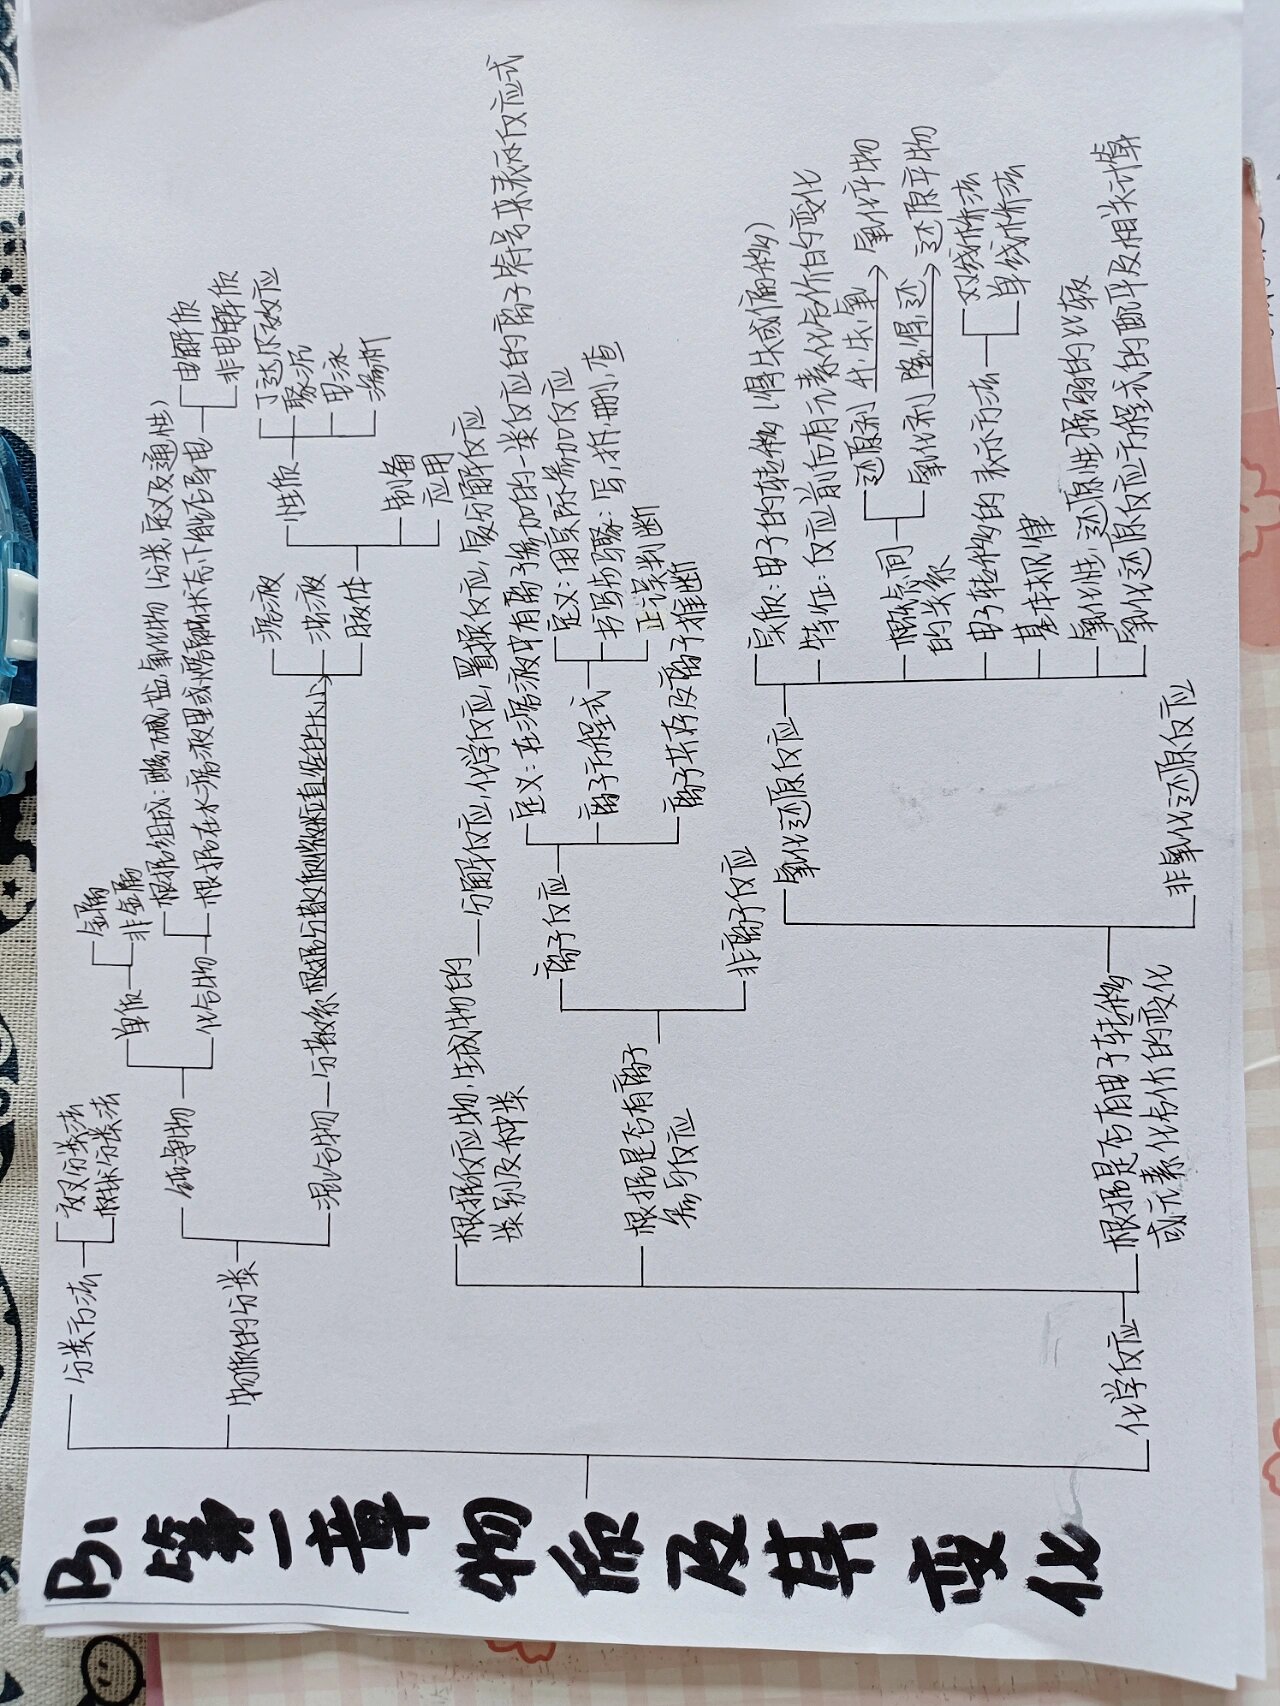 B1 第一章 物质及其变化
分类方法
交叉分类法
树状分类法
物质的分类
纯净物
单质
金属
非金属
化合物
根据组成:酸,碱,盐,氧化物(分类,定义及通性)
根据在水溶液里或熔融状态下能否导电
电解质
非电解质
混合物
分散系
根据分散质微粒直径的大小
溶液
浊液
胶体
性质
丁达尔效应
聚沉
电泳
渗析
制备
应用
化学反应
根据反应物,生成物的
类别及种类
分解反应,化学反应,置换反应,复分解反应
根据是否有离子
参与反应
离子反应
定义:在溶液中有离子参加的一类反应的离子符号来表示反应式
离子方程式
定义:用实际参加反应
书写步骤:写,拆,删,查
正误判断
离子共存及离子推断
非离子反应
根据是否有电子转移
或元素化合价的变化
氧化还原反应
实质:电子的转移(得失或偏移)
特征:反应前后有元素化合价的变化
概念间
的关系
还原剂 升,失,氧 → 氧化产物
氧化剂 降,得,还 → 还原产物
电子转移的表示方法
双线桥法
单线桥法
基本规律
氧化性,还原性强弱的比较
氧化还原反应方程式的配平及相关计算
非氧化还原反应